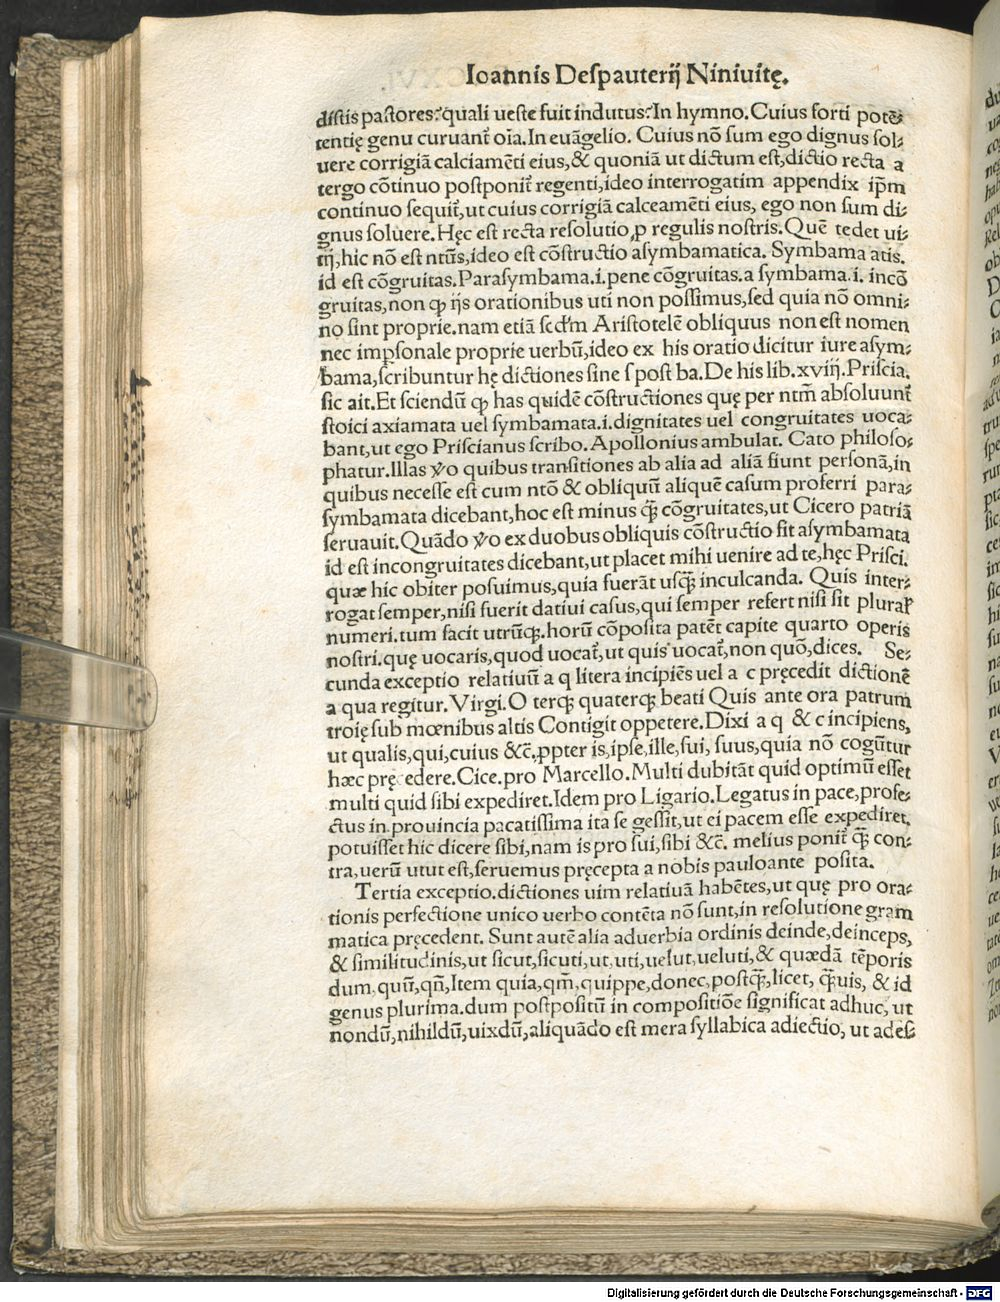 Ioannis Despauterij Niniuitę.
distis pastores? quali ueste fuit indutus? In hymno. Cuius forti potē-
tentię genu curuant᷑ oīa. In euāgelio. Cuius nō sum ego dignus sol-
uere corrigiā calciamēti eius, & quoniā ut dictum est, dictio recta a
tergo cōtinuo postponit᷑ regenti, ideo interrogatim appendix ip̄m
continuo sequit᷑, ut cuius corrigiā calceamēti eius, ego non sum di-
gnus soluere. Hęc est recta resolutio, ꝓ regulis nostris. Quē tedet ui-
tij, hic nō est ntūs, ideo est cōstructio asymbamatica. Symbama atis.
id est cōgruitas. Parasymbama .i. pene cōgruitas. a symbama .i. incō
gruitas, non ꝙ ijs orationibus uti non possimus, sed quia nō omni-
no sint proprie. nam etiā secd'm Aristotelē obliquus non est nomen
nec imp̱sonale proprie uerbū, ideo ex his oratio dicitur iure asym-
bama, scribuntur hę dictiones sine s post ba. De his lib. xviij. Priscia.
sic ait. Et sciendū ꝙ has quidē cōstructiones quę per ntm̄ absoluunt᷑
stoici axiamata uel symbamata .i. dignitates uel congruitates uoca-
bant, ut ego Priscianus scribo. Apollonius ambulat. Cato philoso-
phatur. Illas v̊o quibus transitiones ab alia ad aliā fiunt personā, in
quibus necesse est cum ntō & obliquū aliquē casum proferri para-
symbamata dicebant, hoc est minus q̄ꝫ cōgruitates, ut Cicero patriā
seruauit. Quādo v̊o ex duobus obliquis cōstructio fit asymbamata
id est incongruitates dicebant, ut placet mihi venire ad te, hęc Prisci.
quæ hic obiter posuimus, quia fuerāt usq̄ꝫ inculcanda. Quis inter-
rogat semper, nisi fuerit datiui casus, qui semper refert nisi sit pluraꝝ
numeri. tum facit utrūqꝫ. horū cōposita patēt capite quarto operis
nostri. quę uocaris, quod uocat᷑, ut quis uocat᷑, non quō, dices. Se-
cunda exceptio relatiuū a q litera incipiēs uel a c pręcedit dictionē
a qua regitur. Virgi. O terqꝫ quaterqꝫ beati Quis ante ora patrum
troię sub mœnibus altis Contigit oppetere. Dixi a q & c incipiens,
ut qualis, qui, cuius &c̄. ꝓpter is, ipse, ille, sui, suus, quia nō cogūtur
hæc pręcedere. Cice. pro Marcello. Multi dubitāt quid optimū esset
multi quid sibi expediret. Idem pro Ligario. Legatus in pace, profe-
ctus in prouincia pacatissima ita se gessit, ut ei pacem esse expediret.
potuisset hic dicere sibi, nam is pro sui, sibi &c̄. melius ponit᷑ q̄ꝫ con-
tra, uerū utut est, seruemus pręcepta a nobis pauloante posita.
Tertia exceptio. dictiones uim relatiuā habētes, ut quę pro ora-
tionis perfectione unico uerbo contēta nō sunt, in resolutione gram
matica pręcedent. Sunt autē alia aduerbia ordinis deinde, deinceps,
& similitudinis, ut sicut, sicuti, ut, uti, uelut, ueluti, & quædā tēporis
dum, quū, qn̄, Item quia, qm̄, quippe, donec, postq̄ꝫ, licet, q̄ꝫuis, & id
genus plurima. dum postpositū in compositiōe significat adhuc, ut
nondū, nihildū, uixdū, aliquādo est mera syllabica adiectio, ut ades
Digitalisierung gefördert durch die Deutsche Forschungsgemeinschaft - DFG